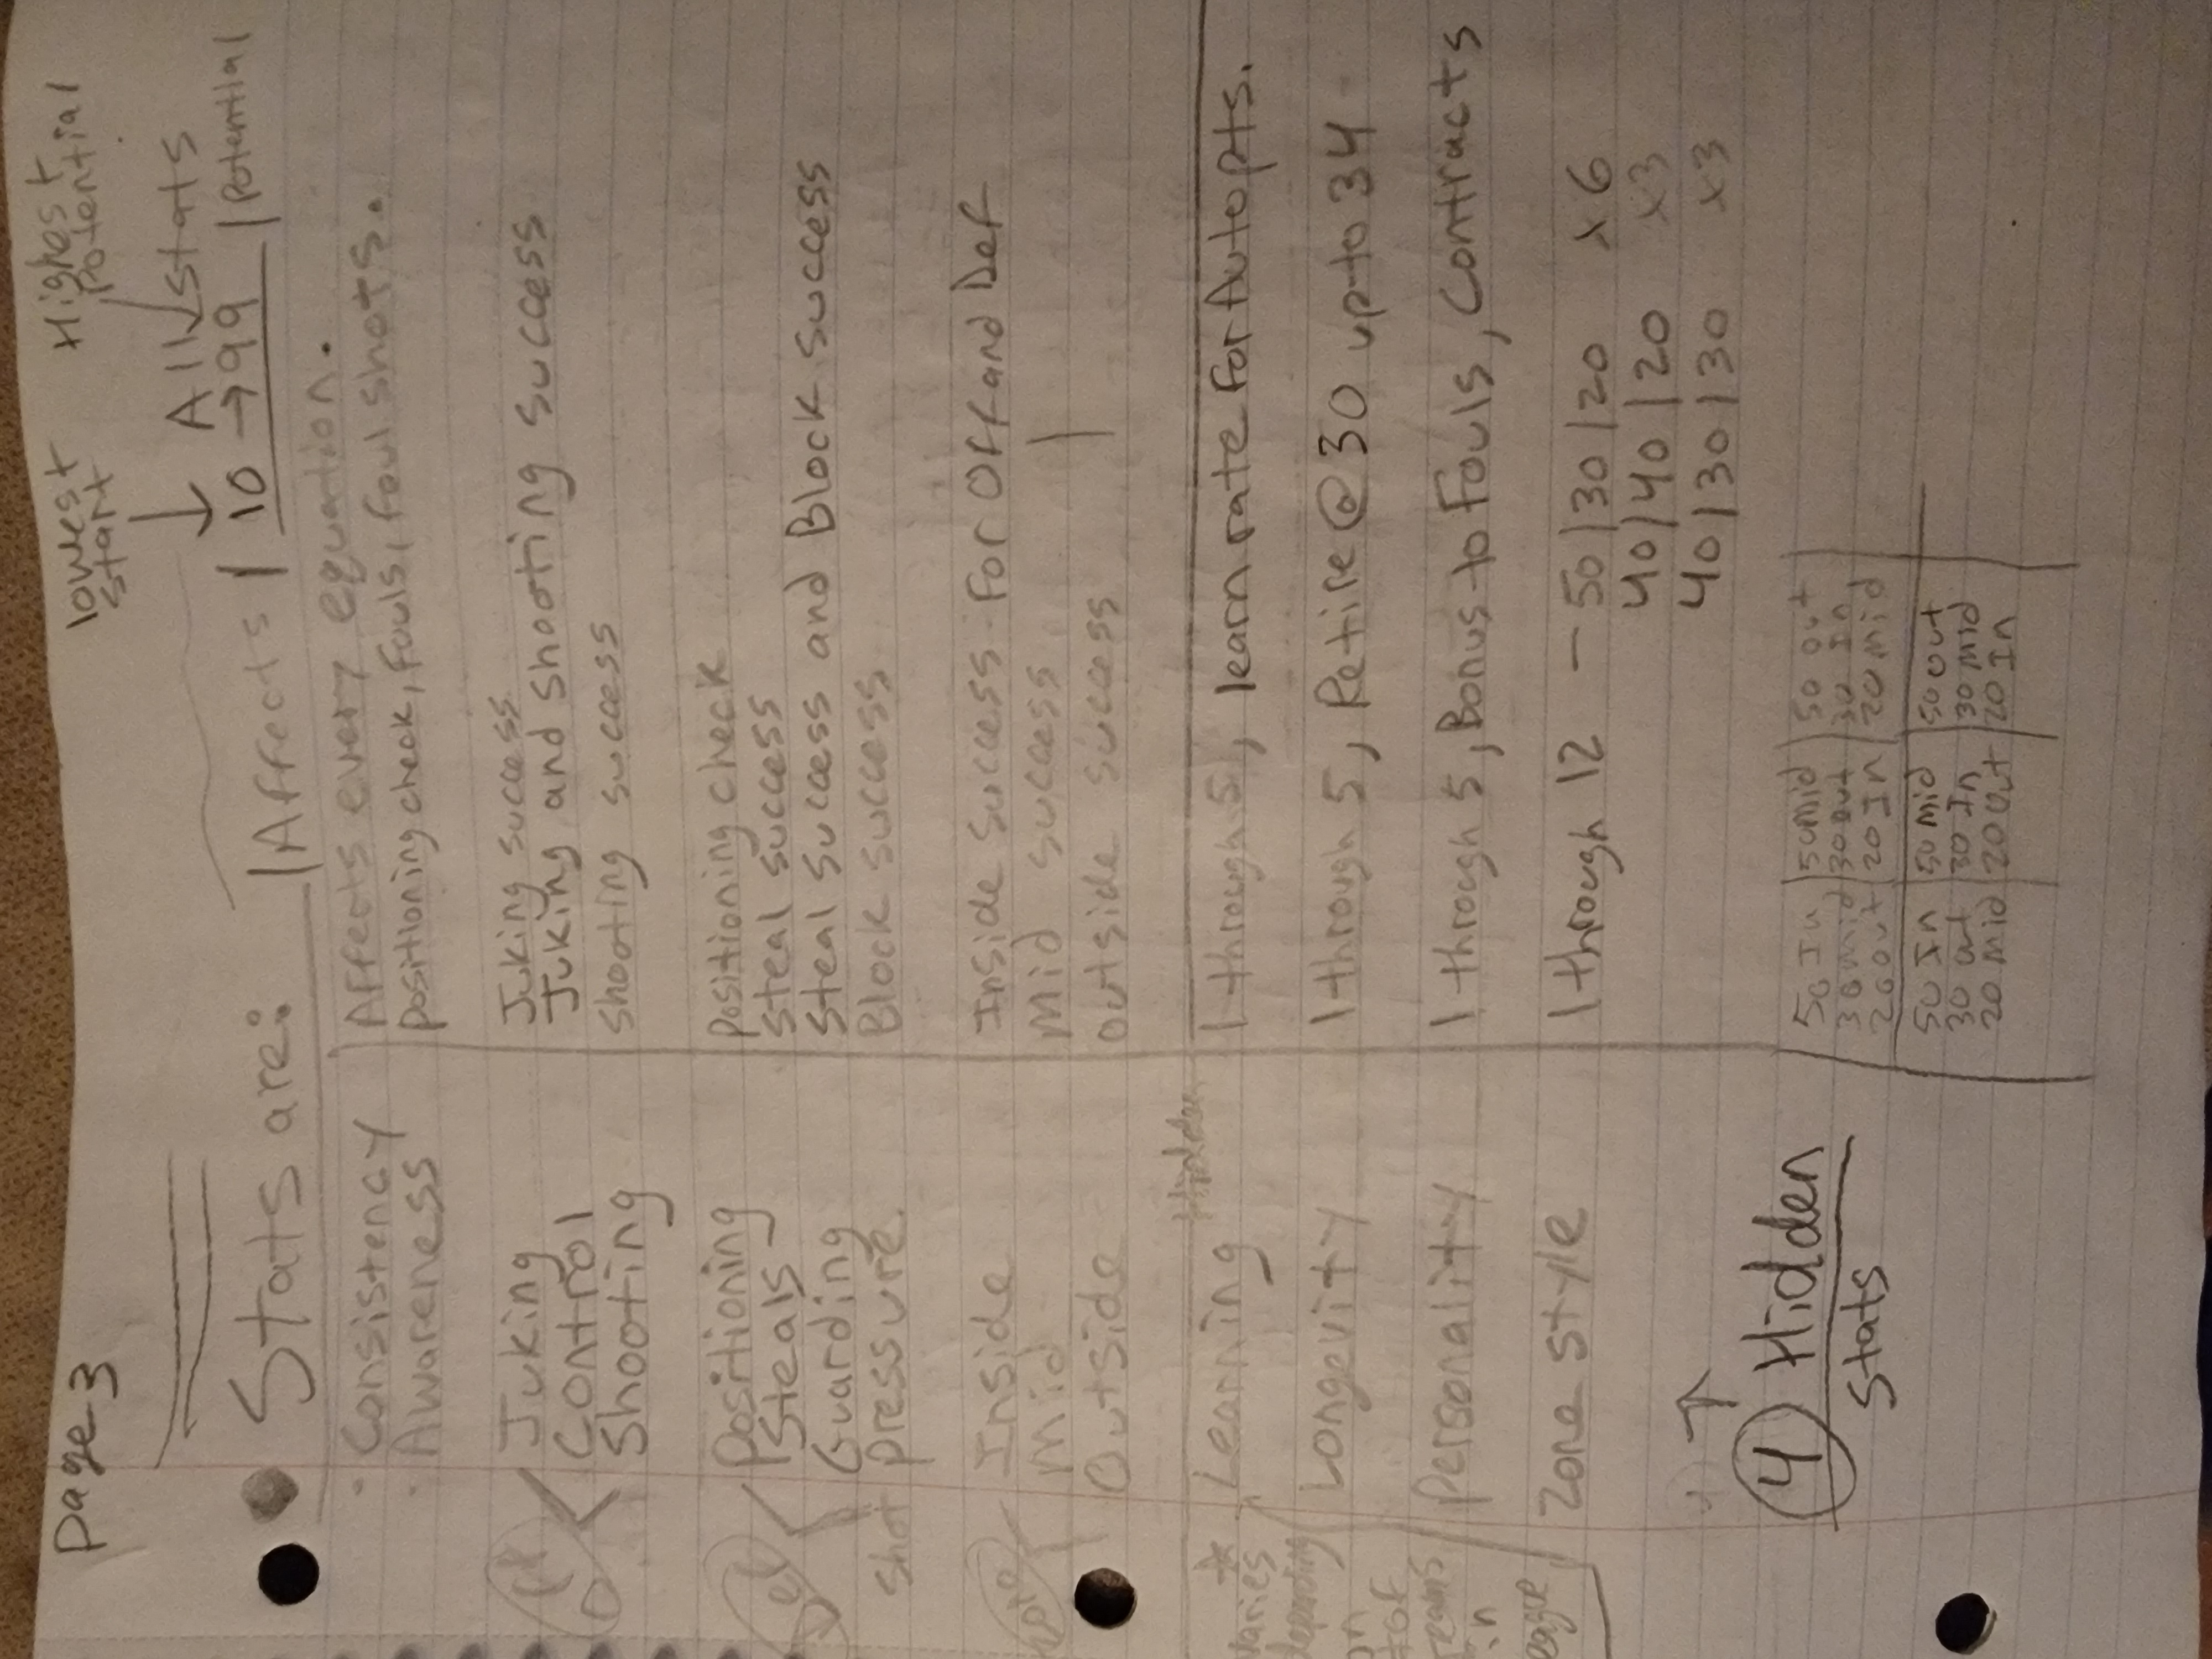 Page 3
lowest start
Highest Potential
All stats
Stats are: | Affects | 10 → 99 | Potential
· Consistency Affects every equation.
· Awareness Positioning check, Fouls, Foul shots.
Off
Juking Juking success
Control Juking and Shooting success
Shooting Shooting success
Def
Positioning Positioning check
Steals Steal success
Guarding Steal Success and Block Success
Shot Pressure. Block success
Zone
Inside Inside Success For Off and Def
Mid Mid success |
Outside Outside success
Hidden
☆ Learning 1 through 5, learn rate for Auto pts.
varies
depending
on
# of
teams
in
league
Longevity 1 through 5, Retire @ 30 up to 34
Personality 1 through 5, Bonus to Fouls, Contracts
Zone style 1 through 12 — 50 | 30 | 20 x 6
40 | 40 | 20 x3
40 | 30 | 30 x3
↑
4 Hidden
Stats
50 In, | 50 mid | 50 out
30 mid | 30 out | 30 In,
20 out | 20 In | 20 mid
50 In | 50 mid | 50 out
30 out | 30 In | 30 mid
20 mid | 20 out | 20 In